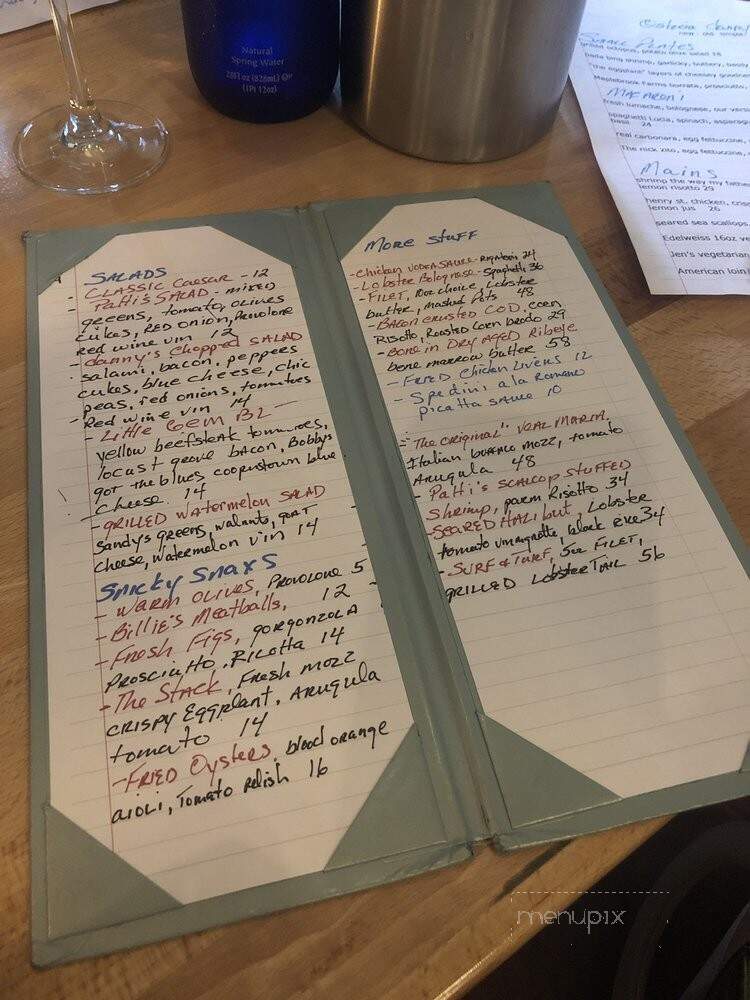 Natural
Spring Water
28fl oz (828mL)
(1Pt 12oz)
SMALL PLATES
MACARONI
24
real carbonara, egg fettuccine,
The nick zito, egg fettuccine,
Mains
shrimp the way my
lemon risotto 29
henry st. chicken,
lemon jus 26
seared sea scallops,
Edelweiss 16oz
Jen's vegetarian
American
SALADS
- CLASSIC CAESAR - 12
- Patti's SALAD - mixed
greens, tomato, olives
cukes, Red onion, Provolone
red wine vin 12
- danny's Chopped SALAD
salami, bacon, peppers
cukes, blue cheese, chic
peas, red onions, tomatoes
Red wine vin 14
- Little Gem BL
yellow beefsteak tomatoes,
locust grove bacon, Bobbys
got the blues cooperstown blue
cheese 14
- GRILLED Watermelon SALAD
Sandy's greens, walnuts, goat
cheese, watermelon vin 14
Snicky Snaxs
- Warm Olives, Provolone 5
- Billie's Meatballs, 12
- Fresh Figs, gorgonzola
Prosciutto, Ricotta 14
- The Stack, Fresh mozz
crispy Eggplant, Arugula
tomato 14
- FRIED Oysters, blood orange
aioli, Tomato Relish 16
MORE STUFF
- Chicken vodka sauce - Rigatoni 24
- Lobster Bolognese - Spaghetti 36
- FILET, 10oz choice, Lobster
butter, mashed Pots 48
- Bacon crusted COD, corn
Risotto, Roasted Corn brodo 29
- Bone in Dry Aged Ribeye
bone marrow butter 58
- FRIED Chicken Livers 12
- Spedini a la Romano
picatta sauce 10
- "The original" VEAL PARM,
Italian buffalo mozz, tomato
Arugula 48
- Patti's SCALLOP STUFFED
Shrimp, parm Risotto 34
- SEARED HALIBUT, Lobster
tomato vinaigrette, black rice 34
- SURF & TURF, 5oz FILET,
GRILLED Lobster Tail 56
menupix